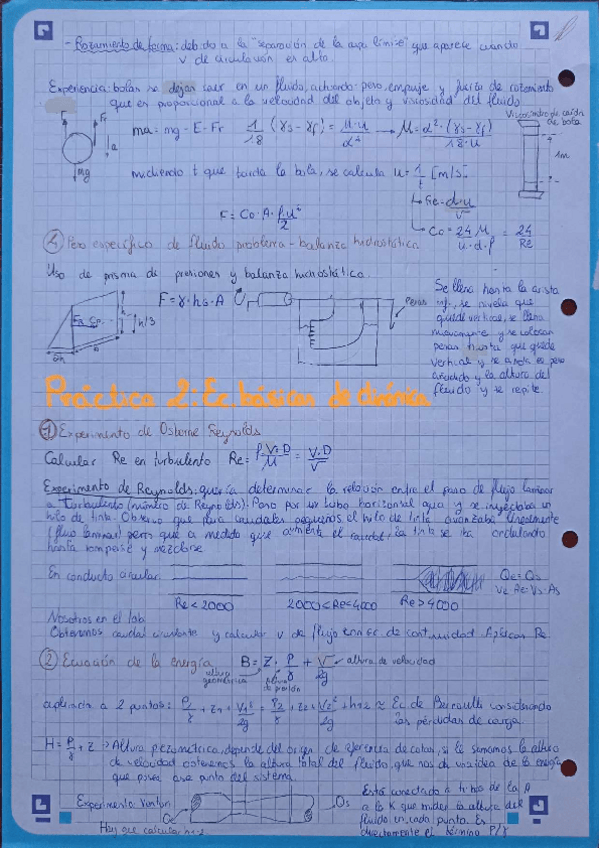 - Rozamiento de forma: debido a la "separación de la capa límite" que aparece cuando
v de circulación es alto.
Experiencia: bolas se dejan caer en un fluido, actuando: peso, empuje y fuerza de rozamiento
que es proporcional a la velocidad del objeto y viscosidad del fluido.
Viscosímetro de caída
de bola
Fr
a
mg
ma = mg - E - Fr   1/18 (γs - γf) = μ·u/d² → μ = d²·(γs-γf)/18·u
1m
midiendo t que tarda la bola, se calcula u = 1/t [m/s]
Re = d·u/ν
F = CD·A·ρ·u²/2
CD = 24 μ/u·d·ρ = 24/Re
④ Peso específico de fluido problema - balanza hidrostática
Uso de prisma de presiones y balanza hidrostática.
F = γ·hG·A
h/3
Pesas
Se llena hasta la arista
inf., se nivela que
quede vertical, se llena
nuevamente y se colocan
pesas hasta que quede
vertical y se anota el peso
añadido y la altura del
fluido y se repite.
Práctica 2: Ec. básicas de dinámica
① Experimento de Osborne Reynolds
Calcular Re en turbulento   Re = ρ·V·D/μ = V·D/ν
Experimento de Reynolds: quería determinar la relación entre el paso de flujo laminar
a turbulento (número de Reynolds). Paso por un tubo horizontal agua y se inyectaba un
hilo de tinta. Observó que para caudales pequeños el hilo de tinta avanzaba linealmente
(flujo laminar) pero que a medida que aumenta el caudal, la tinta se iba ondulando
hasta romperse y mezclarse
En conducto circular:
Re < 2000   2000 < Re < 4000   Re > 4000
Qe = Qs
Ve·Ae = Vs·As
Nosotros en el lab.
Obtenemos caudal circulante y calcular v de flujo con ec de continuidad. Aplicar Re
② Ecuación de la energía   B = Z + P/γ + V²/2g → altura de velocidad
altura
geométrica
altura
de presión
aplicada a 2 puntos: P1/γ + z1 + V1²/2g = P2/γ + z2 + V2²/2g + h1-2 ≈ Ec de Bernoulli considerando
las pérdidas de carga.
H = P/γ + z → Altura piezométrica, depende del origen de referencia de cotas, si le sumamos la altura
de velocidad obtenemos la altura total del fluido, que nos da una idea de la energía
que posee ese punto del sistema.
Experimento Venturi
Qe
Qs
Hay que calcular h1-2
Está conectado a tubos de la A
a la K que miden la altura del
fluido en cada punto. Es
directamente el término P/γ